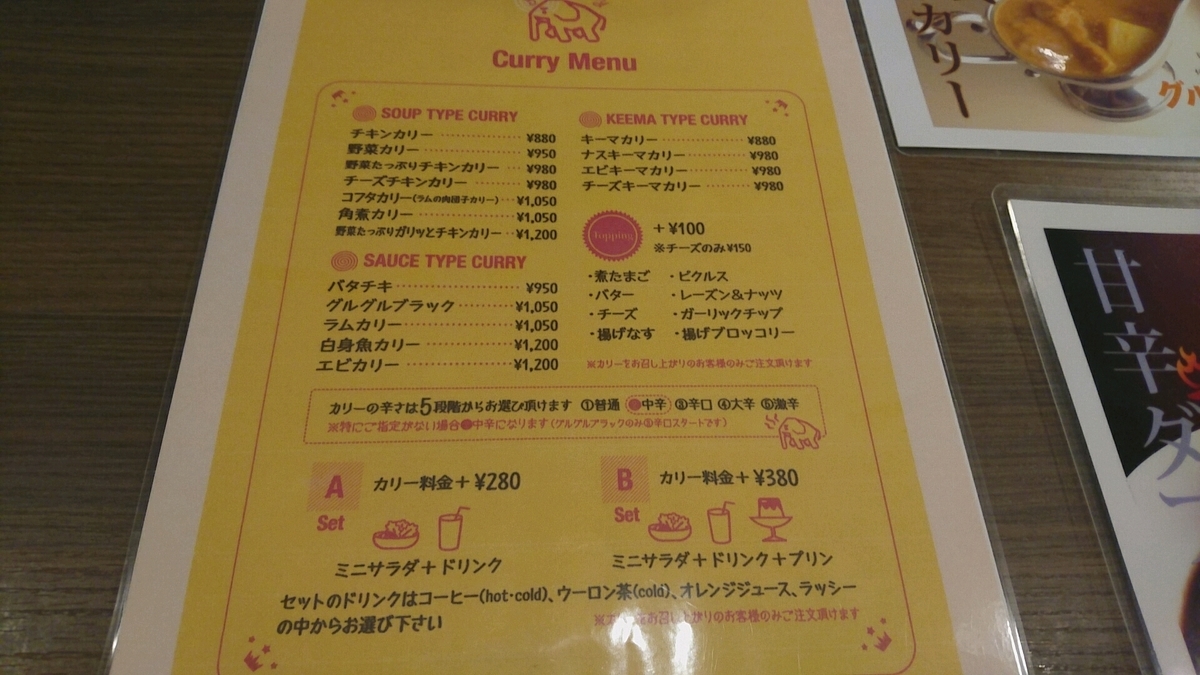 Curry Menu
SOUP TYPE CURRY
チキンカリー ¥880
野菜カリー ¥950
野菜たっぷりチキンカリー ¥980
チーズチキンカリー ¥980
コフタカリー(ラムの肉団子カリー) ¥1,050
角煮カリー ¥1,050
野菜たっぷりガリッとチキンカリー ¥1,200
SAUCE TYPE CURRY
バタチキ ¥950
グルグルブラック ¥1,050
ラムカリー ¥1,050
白身魚カリー ¥1,200
エビカリー ¥1,200
KEEMA TYPE CURRY
キーマカリー ¥880
ナスキーマカリー ¥980
エビキーマカリー ¥980
チーズキーマカリー ¥980
Topping
+¥100
※チーズのみ¥150
・煮たまご ・ピクルス
・バター ・レーズン&ナッツ
・チーズ ・ガーリックチップ
・揚げなす ・揚げブロッコリー
※カリーをお召し上がりのお客様のみご注文頂けます
カリーの辛さは5段階からお選び頂けます ①普通 ●中辛 ③辛口 ④大辛 ⑤激辛
※特にご指定がない場合●中辛になります(グルグルブラックのみ③辛口スタートです)
A Set
カリー料金+¥280
ミニサラダ+ドリンク
B Set
カリー料金+¥380
ミニサラダ+ドリンク+プリン
セットのドリンクはコーヒー(hot・cold)、ウーロン茶(cold)、オレンジジュース、ラッシー
の中からお選び下さい
お召し上がりのお客様のみご注文頂けます
カリー
グル
甘辛ダ